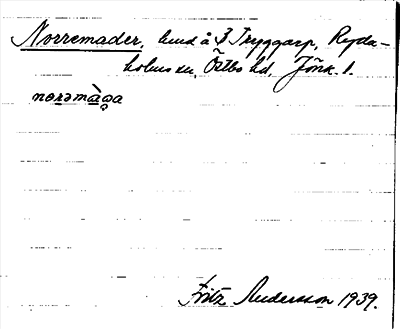 Norremader, hmd å 3 Tryggarp, Ryda-
holms sn, Östbo hd, Jönk. l.
norəmàꝺa
Fritz Andersson 1939.